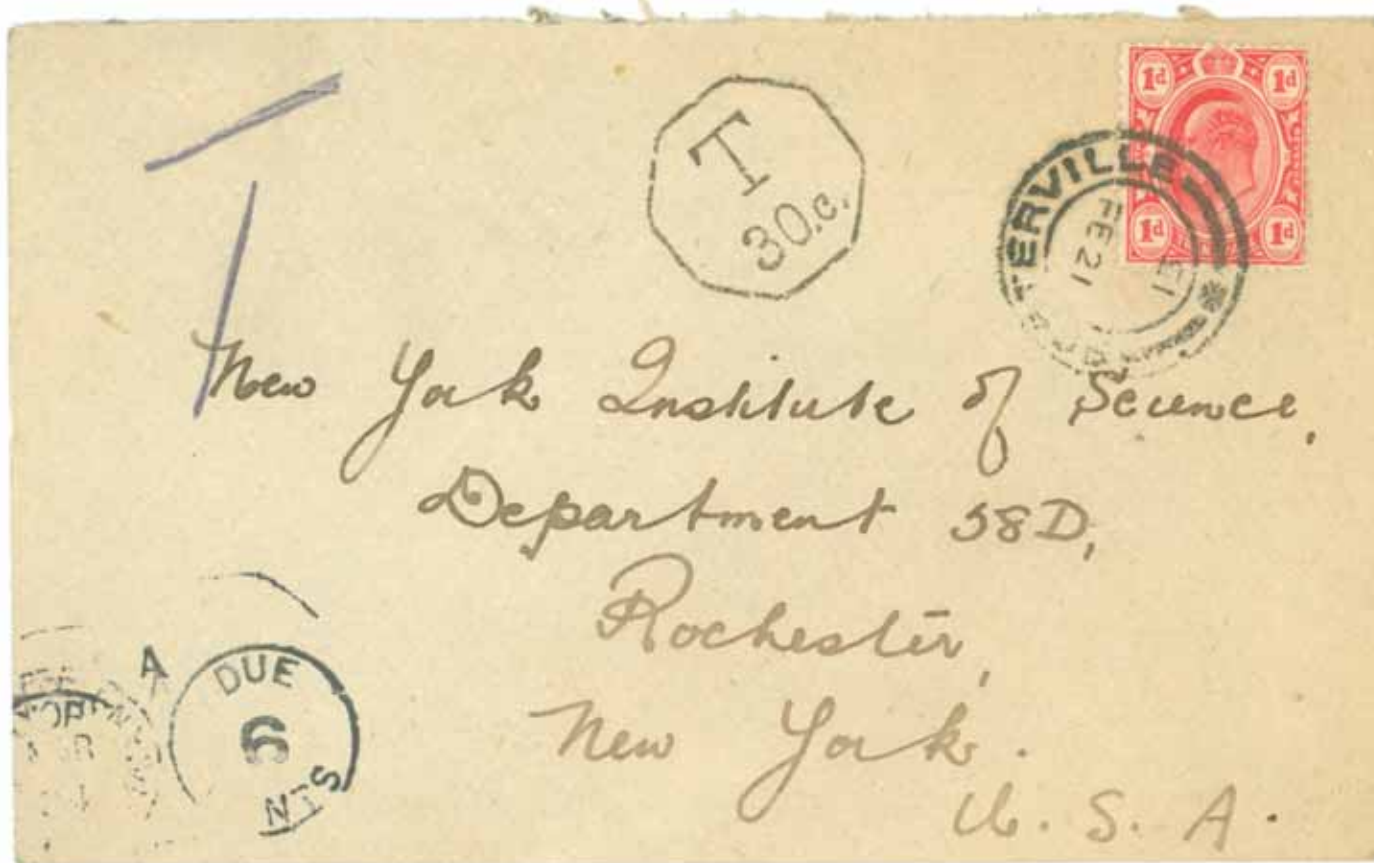 1d 1d
1d 1d
T
30.c.
TERVILLE
FE 21
New York Institute of Science,
Department 58D,
Rochester,
New York.
U. S. A.
DUE
6
NTS